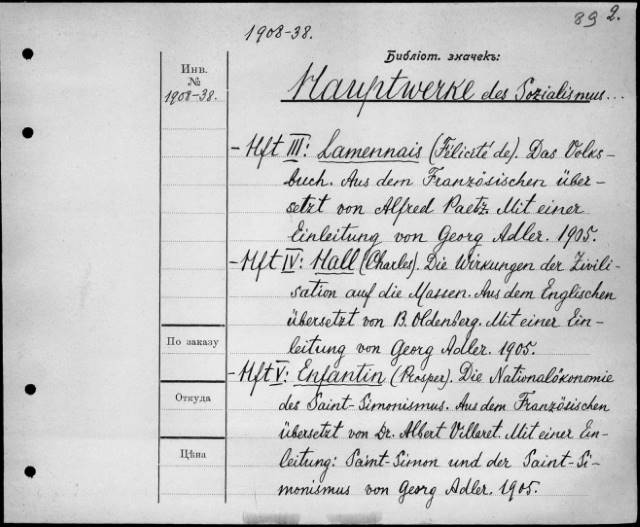 1908-38.
89 2.
Библіот. значекъ:
Инв.
№
1908-38.
Hauptwerke des Sozialismus...
- Hft III: Lamennais (Félicité de). Das Volks-
buch. Aus dem Französischen über-
setzt von Alfred Paetz. Mit einer
Einleitung von Georg Adler. 1905.
- Hft IV: Hall (Charles). Die Wirkungen der Zivili-
sation auf die Massen. Aus dem Englischen
übersetzt von B. Oldenberg. Mit einer Ein-
leitung von Georg Adler. 1905.
- Hft V: Enfantin (Prosper). Die Nationalökonomie
des Saint-Simonismus. Aus dem Französischen
übersetzt von Dr. Albert Villaret. Mit einer Ein-
leitung: Saint-Simon und der Saint-Si-
monismus von Georg Adler. 1905.
По заказу
Откуда
Цѣна